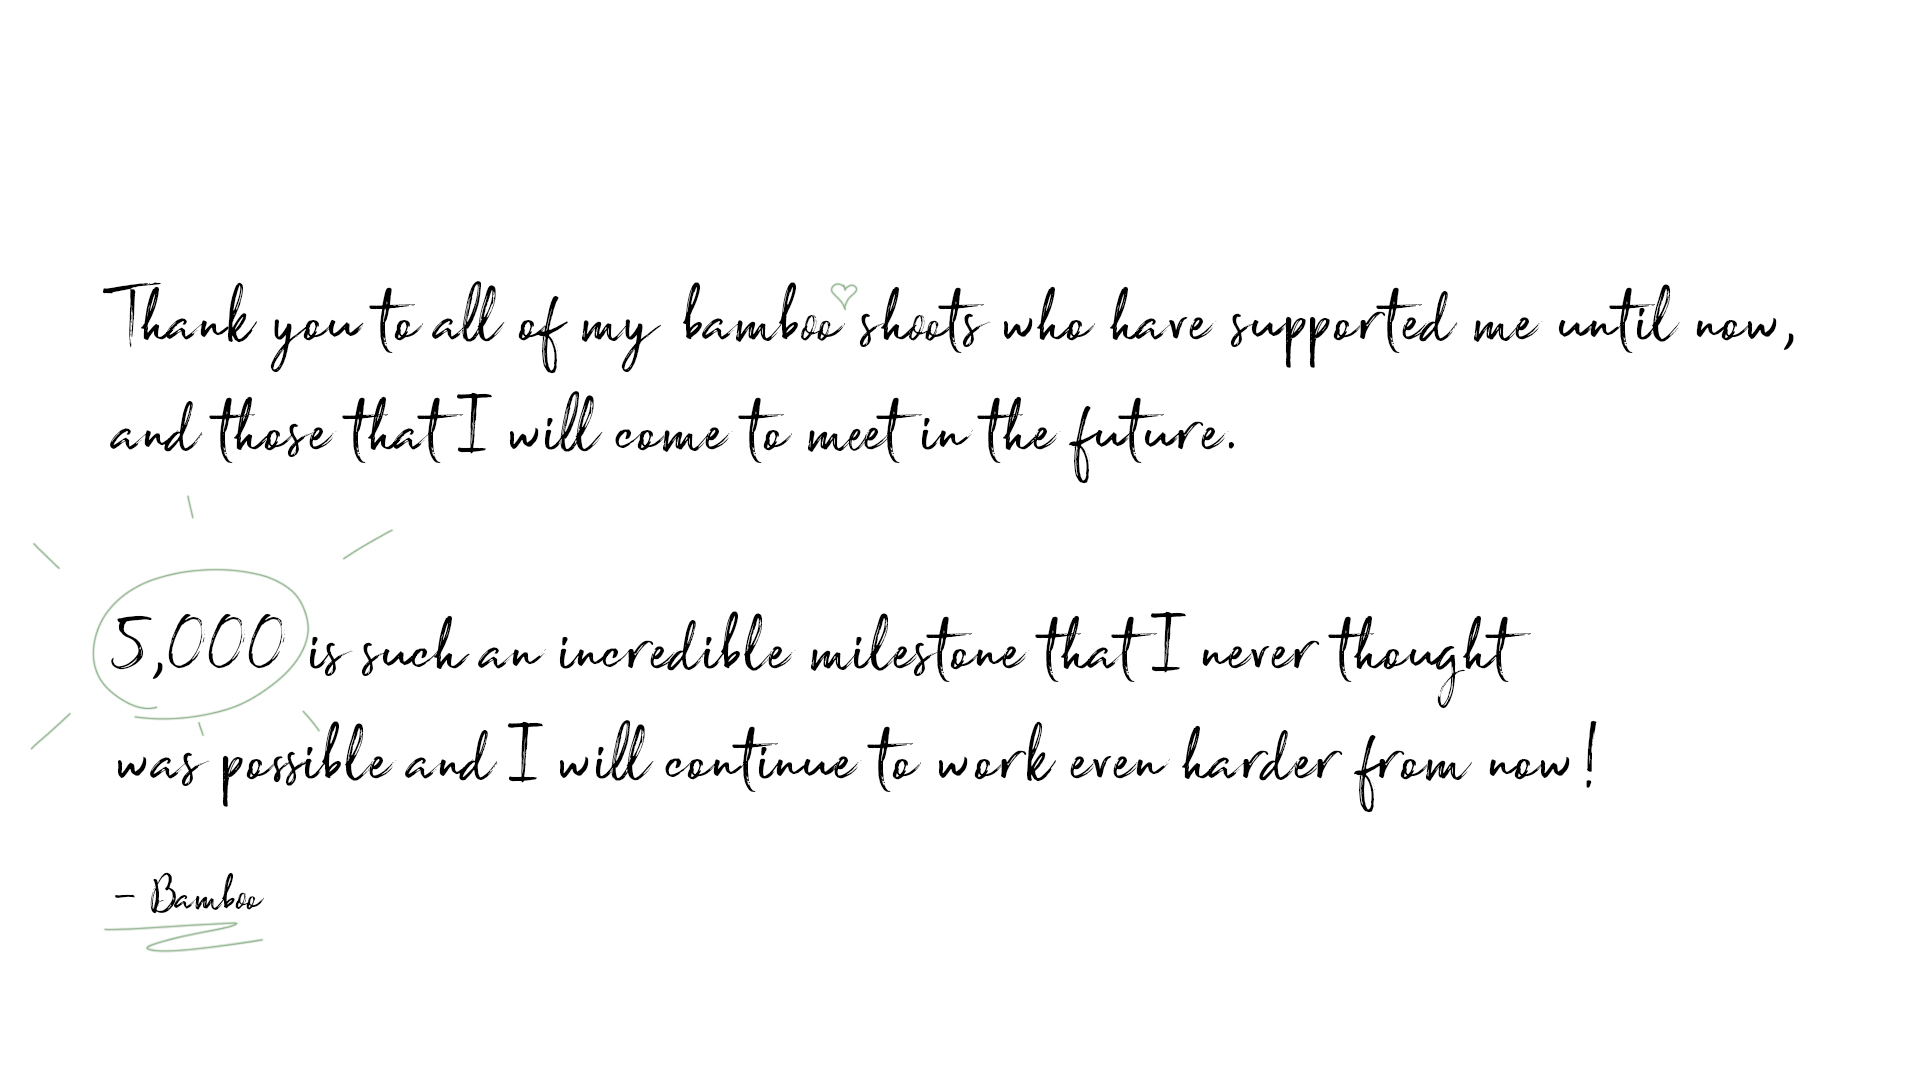 Thank you to all of my bamboo shoots who have supported me until now,
and those that I will come to meet in the future.
5,000 is such an incredible milestone that I never thought
was possible and I will continue to work even harder from now!
- Bamboo